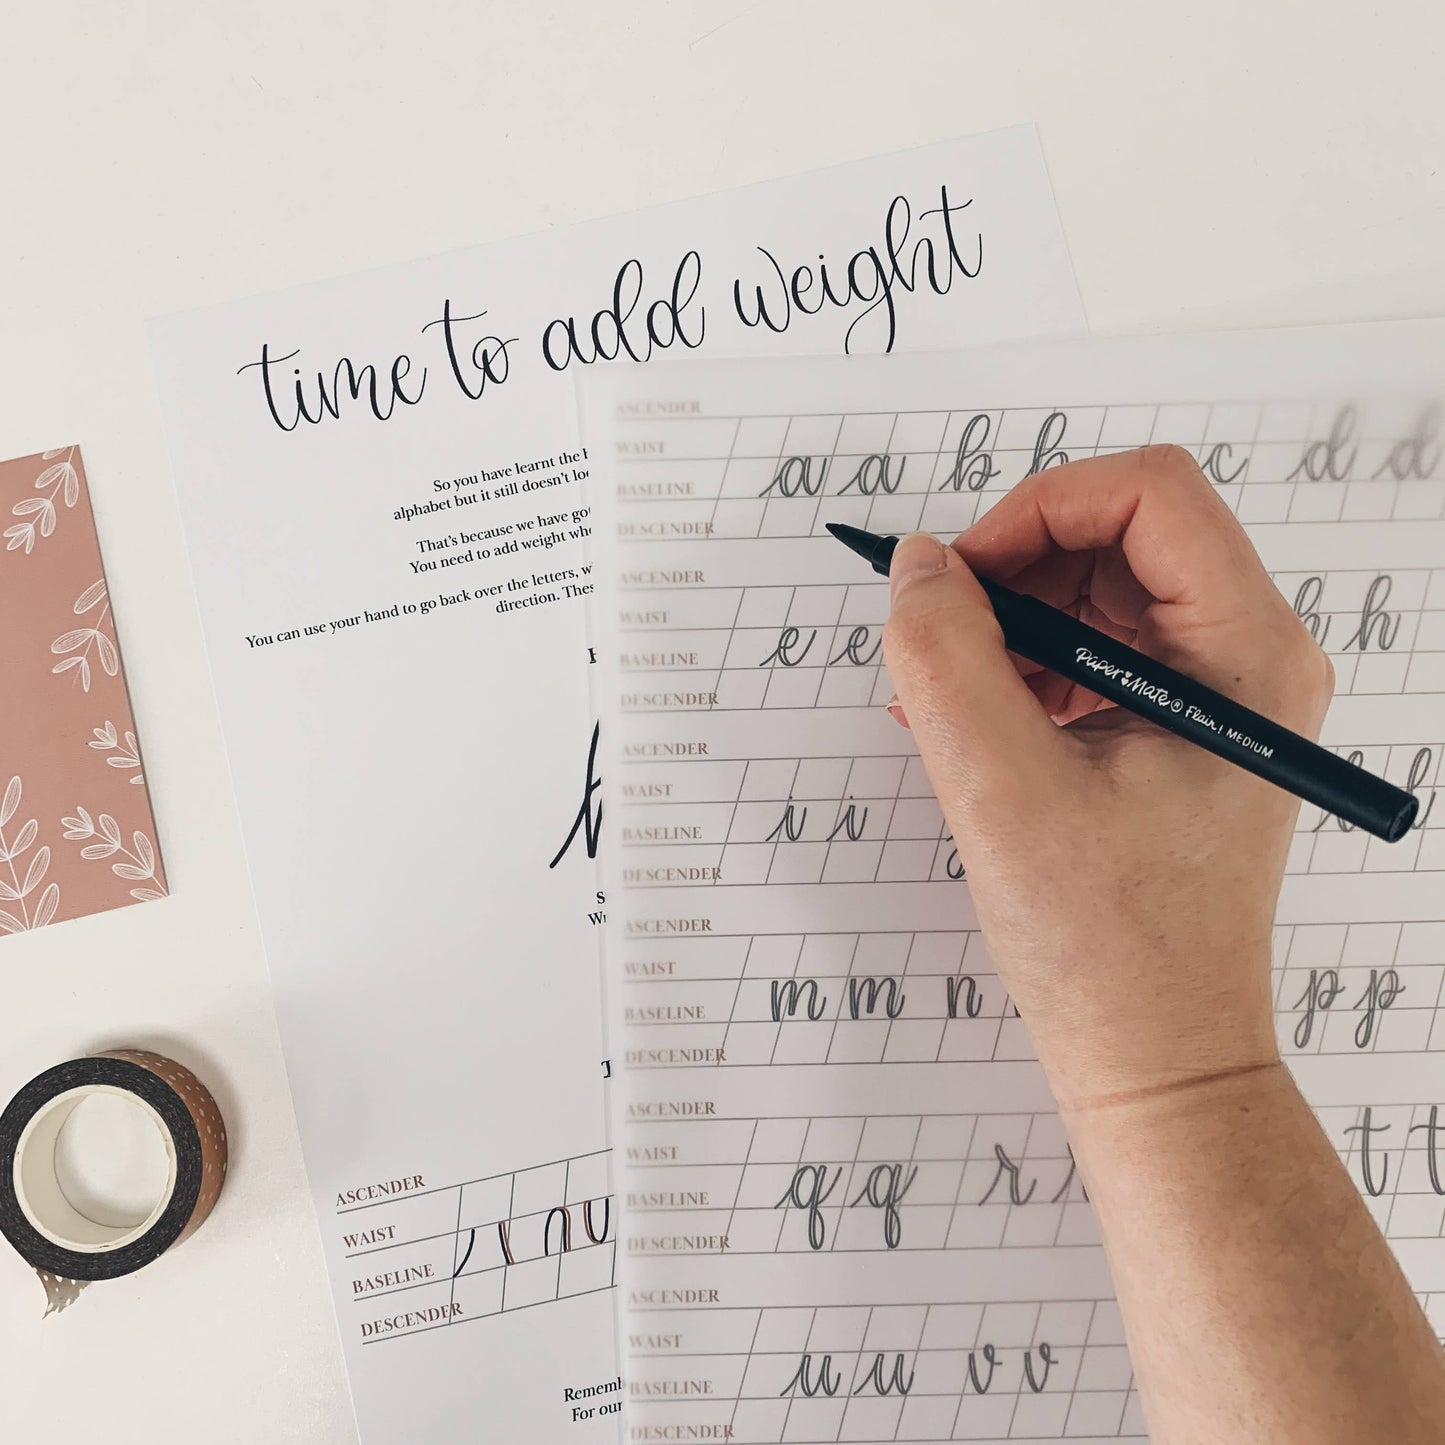 time to add weight
So you have learnt the
alphabet but it still doesn't
That's because we have
You need to add weight
You can use your hand to go back over the letters,
direction.
ASCENDER
WAIST
BASELINE
DESCENDER
For our
ASCENDER
WAIST
BASELINE
DESCENDER
a a b b c d d
ASCENDER
WAIST
BASELINE
DESCENDER
e e h h
ASCENDER
WAIST
BASELINE
DESCENDER
i i
ASCENDER
WAIST
BASELINE
DESCENDER
m m n p p
ASCENDER
WAIST
BASELINE
DESCENDER
q q r t t
ASCENDER
WAIST
BASELINE
DESCENDER
u u v v
Paper Mate® Flair | MEDIUM